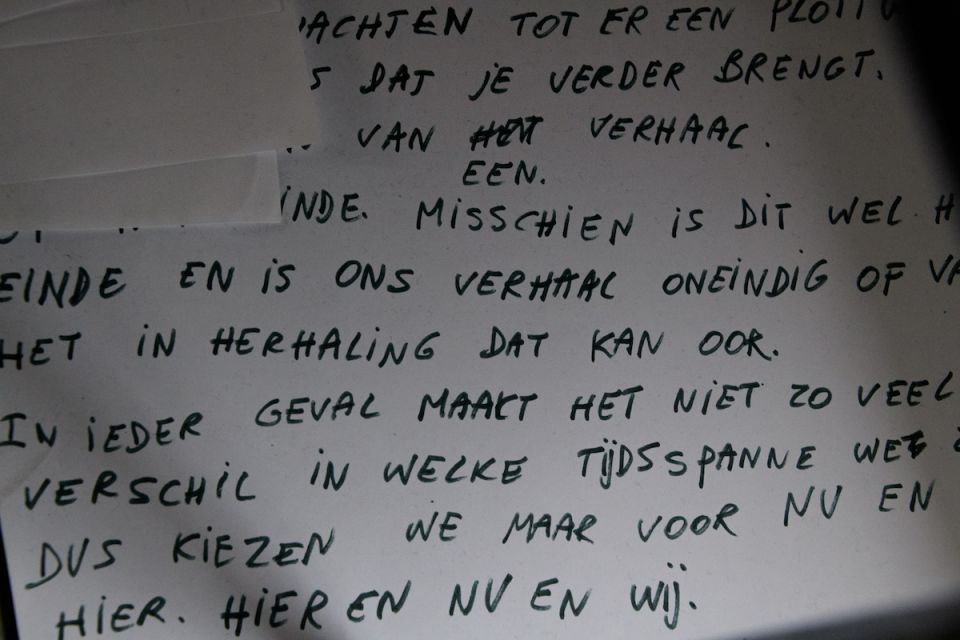 TOT ER EEN
DAT JE VERDER BRENGT.
VAN VERHAAL.
EEN.
MISSCHIEN IS DIT WEL
EINDE EN IS ONS VERHAAL ONEINDIG OF
HET IN HERHALING DAT KAN OOR.
IN IEDER GEVAL MAAKT HET NIET ZO VEEL
VERSCHIL IN WELKE TIJDSSPANNE WE
DUS KIEZEN WE MAAR VOOR NU EN
HIER. HIER EN NU EN WIJ.